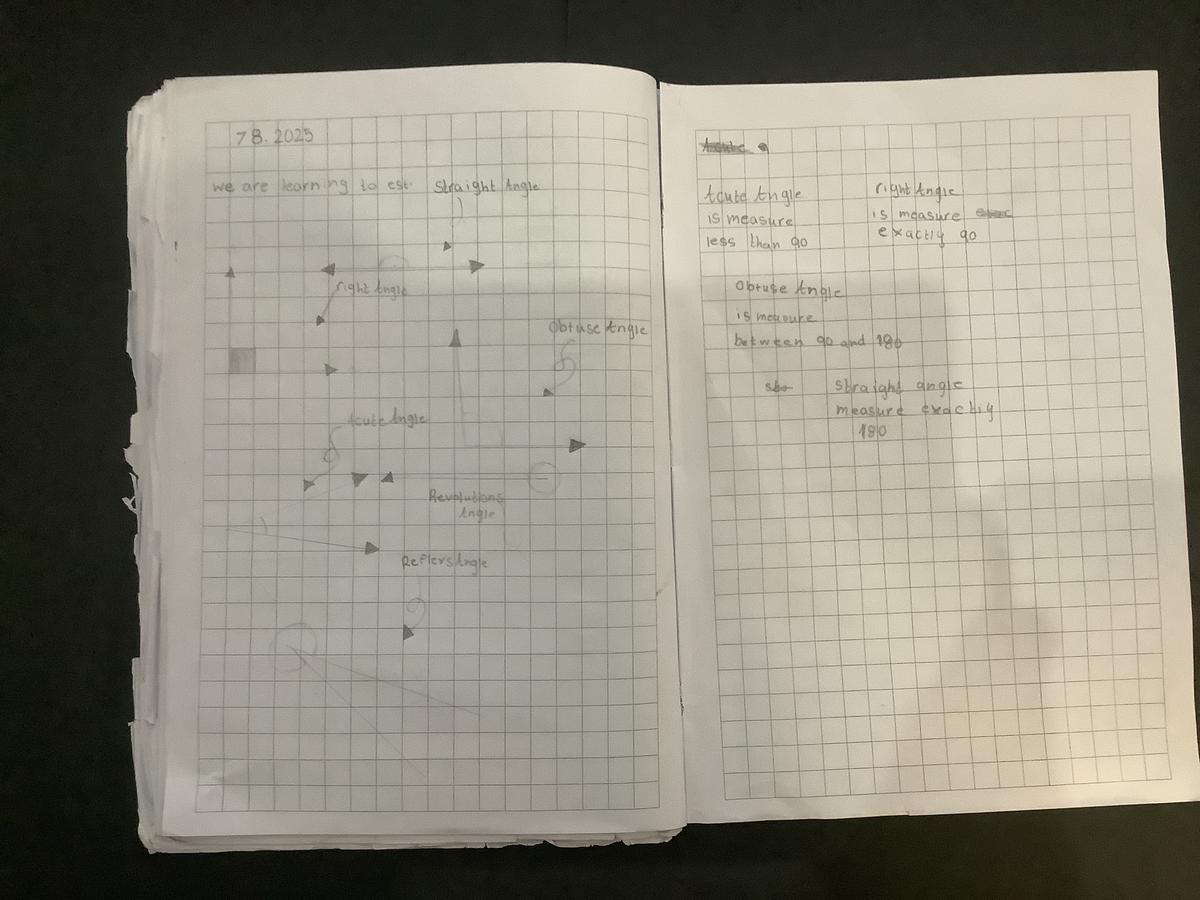 7 8. 2025
we are learning to est Straight Angle
right Angle
Obtuse Angle
Acute Angle
Revolutions
Angle
Reflers Angle
Acute Angle
is measure
less than 90
right Angle
is measure
exactly 90
Obtuse Angle
is measure
between 90 and 180
straight angle
measure exactly
180